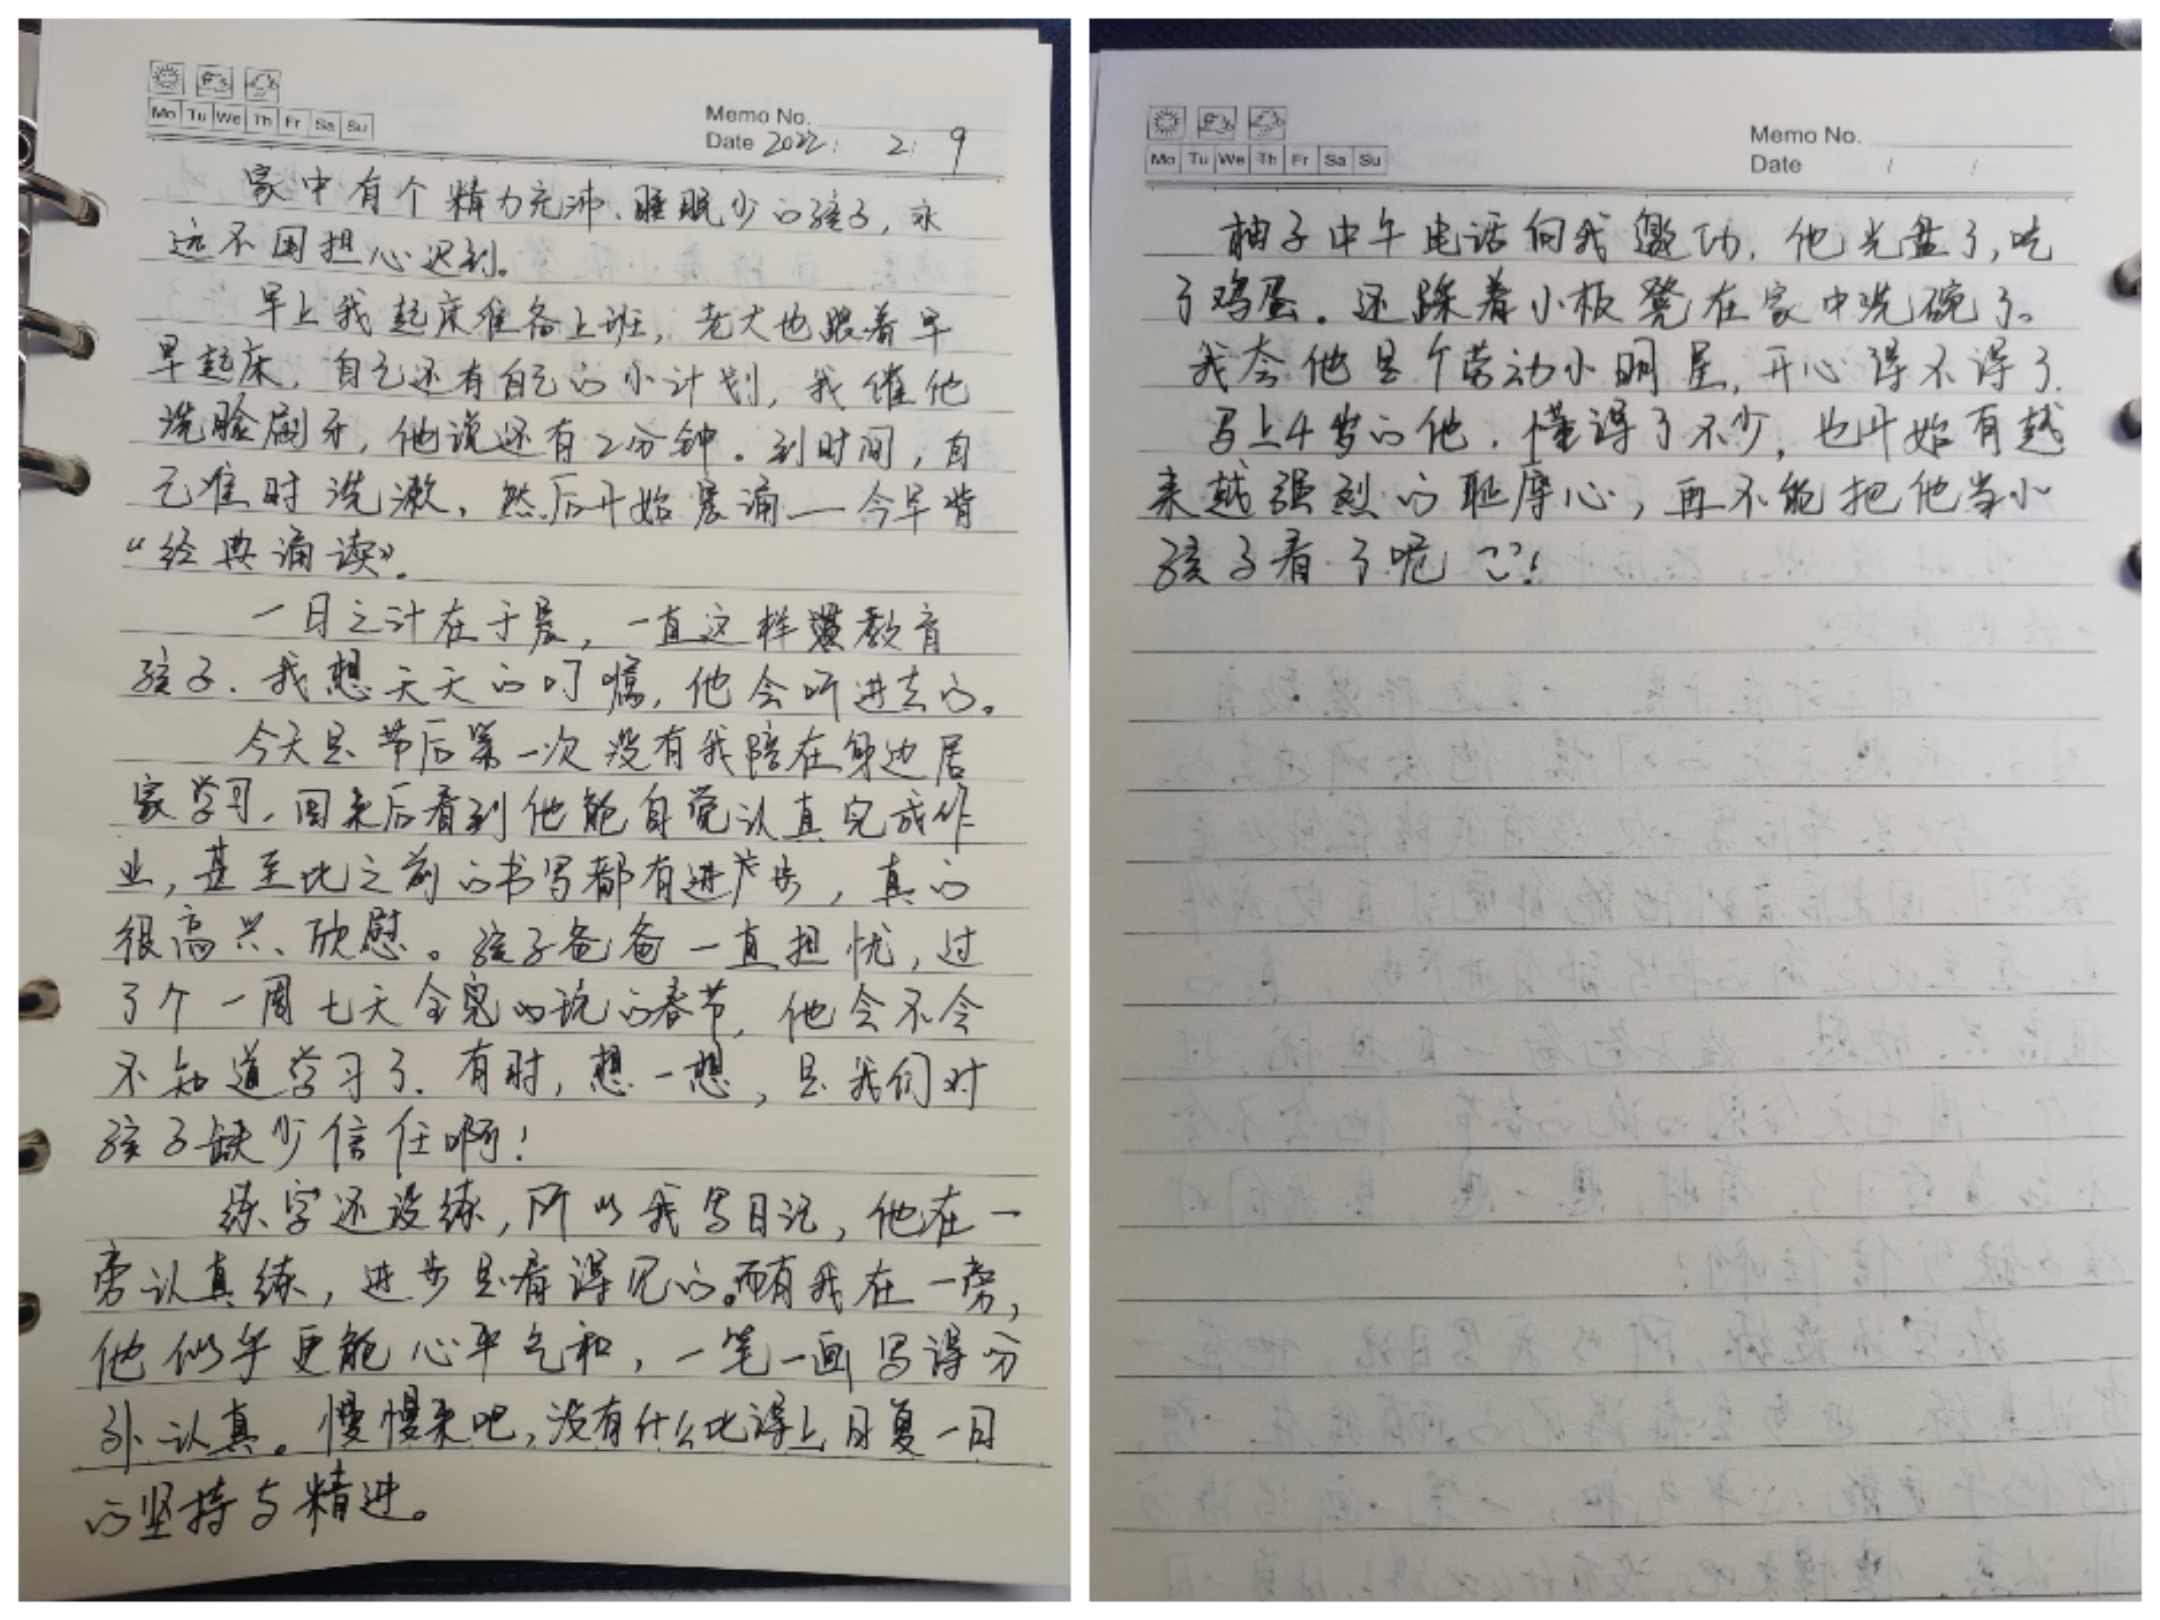 Mo Tu We Th Fr Sa Su
Memo No.
Date 2022 / 2 / 9
家中有个精力充沛、睡眠少的孩子，永
远不用担心迟到。
早上我起床准备上班，老大也跟着早
早起床，自己还有自己的小计划，我催他
洗脸刷牙，他说还有2分钟。到时间，自
己准时洗漱，然后开始晨诵——今早背
“经典诵读”。
一日之计在于晨，一直这样教育
孩子．我想天天的叮嘱，他会听进去的。
今天是节后第一次没有我陪在身边居
家学习，回来后看到他能自觉认真完成作
业，甚至比之前的书写都有进步，真的
很高兴、欣慰。孩子爸爸一直担忧，过
了个一周七天全完的玩的春节，他会不会
不知道学习了．有时，想一想，是我们对
孩子缺少信任啊！
练字还没练，所以我写日记，他在一
旁认真练，进步是看得见的。而有我在一旁，
他似乎更能心平气和，一笔一画写得分
外认真。慢慢来吧，没有什么比得上日复一日
的坚持与精进。
Mo Tu We Th Fr Sa Su
Memo No.
Date / /
柚子中午电话向我邀功，他光盘了，吃
了鸡蛋。还踩着小板凳在家中洗碗了。
我夸他是个劳动小明星，开心得不得了．
马上4岁的他，懂得了不少，也开始有越
来越强烈的耻辱心，再不能把他当小
孩子看了呢！